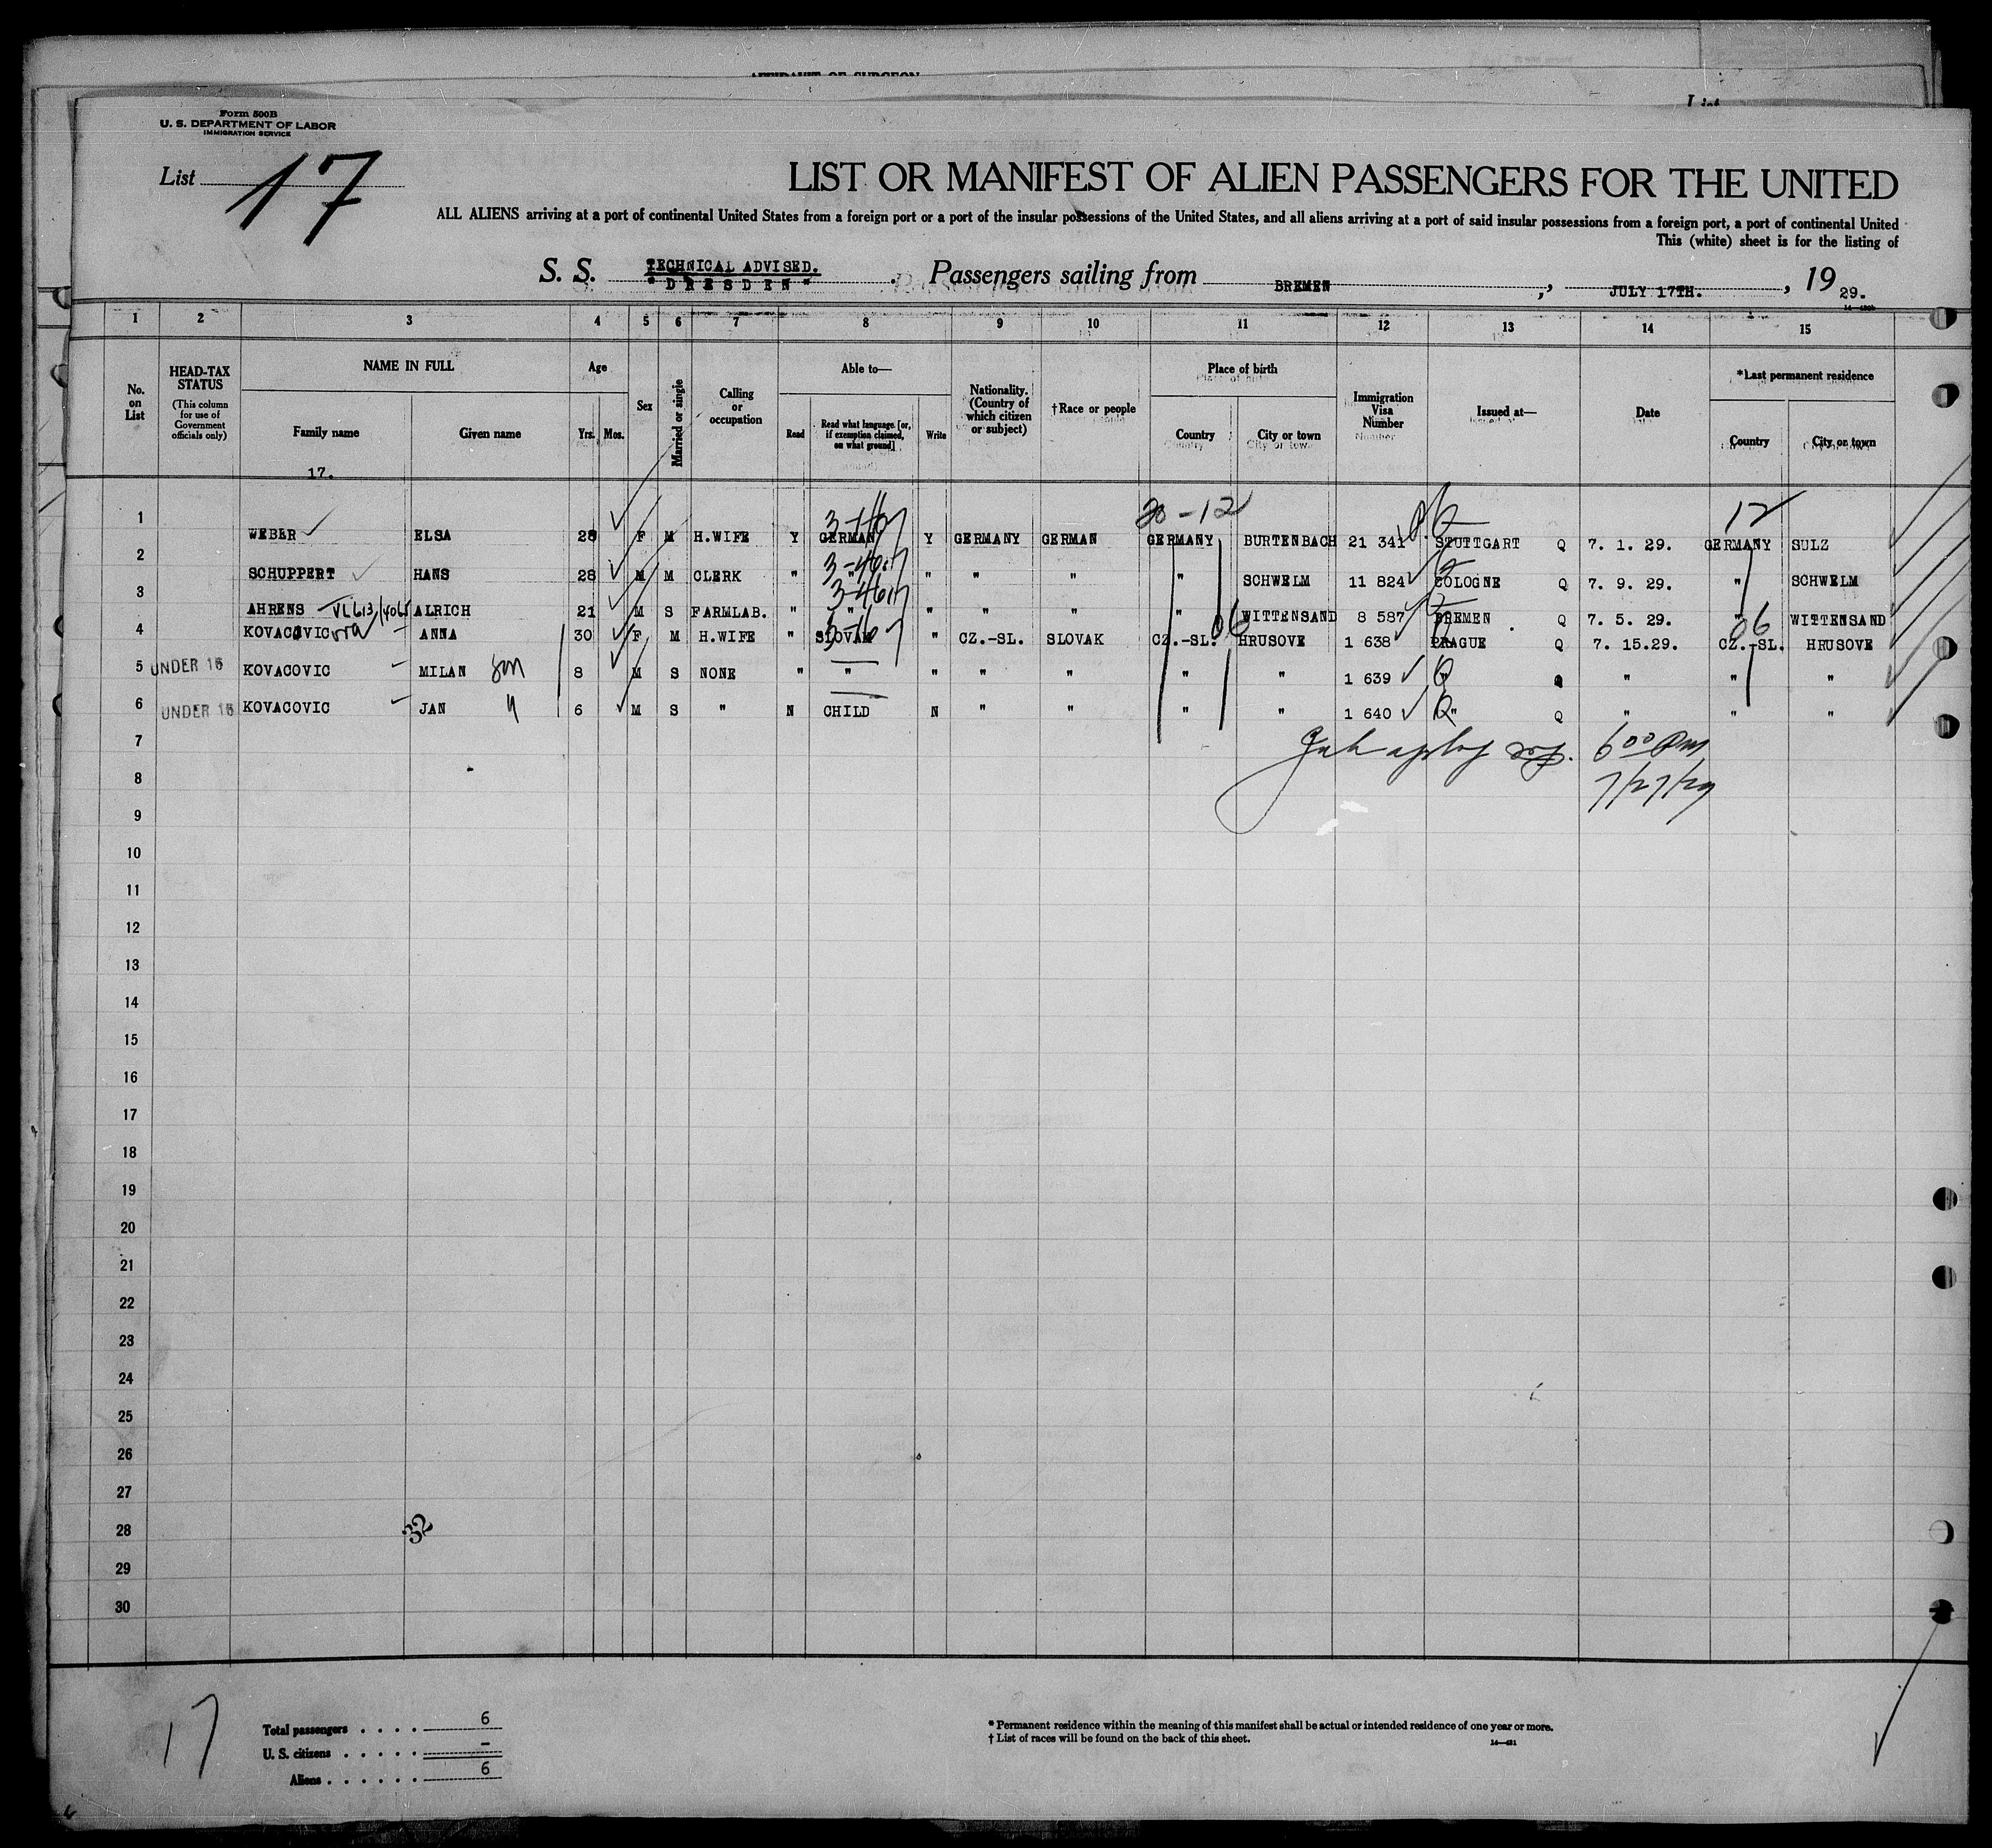 AFFIDAVIT OF SURGEON
List
Form 500B
U. S. DEPARTMENT OF LABOR
IMMIGRATION SERVICE
List 17
LIST OR MANIFEST OF ALIEN PASSENGERS FOR THE UNITED
ALL ALIENS arriving at a port of continental United States from a foreign port or a port of the insular possessions of the United States, and all aliens arriving at a port of said insular possessions from a foreign port, a port of continental United
This (white) sheet is for the listing of
TECHNICAL ADVISED.
S. S. "DRESDEN" Passengers sailing from BREMEN, JULY 17TH., 19 29.
1 2 3 4 5 6 7 8 9 10 11 12 13 14 15
No. on List
HEAD-TAX STATUS (This column for use of Government officials only)
NAME IN FULL
Family name
Given name
Age
Yrs. Mos.
Sex
Married or single
Calling or occupation
Able to—
Read
Read what language [or, if exemption claimed, on what ground]
Write
Nationality. (Country of which citizen or subject)
†Race or people
Place of birth
Country
City or town
Immigration Visa Number
Issued at—
Date
*Last permanent residence
Country
City or town
17.
20-12 12
1 WEBER ELSA 28 F M H.WIFE Y GERMAN Y GERMANY GERMAN GERMANY BURTENBACH 21 341 STUTTGART Q 7. 1. 29. GERMANY SULZ
2 SCHUPPERT HANS 28 M M CLERK " " " " " " SCHWELM 11 824 COLOGNE Q 7. 9. 29. " SCHWELM
3 AHRENS ALRICH 21 M S FARMLAB. " " " " " " WITTENSAND 8 587 BREMEN Q 7. 5. 29. " WITTENSAND
06 06
4 KOVACOVIC ANNA 30 F M H.WIFE " SLOVAK " CZ.-SL. SLOVAK CZ.-SL. HRUSOVE 1 638 PRAGUE Q 7. 15.29. CZ.-SL. HRUSOVE
5 UNDER 16 KOVACOVIC MILAN son 8 M S NONE " " " " " " " 1 639 " Q " " "
6 UNDER 16 KOVACOVIC JAN " 6 M S " N CHILD N " " " " 1 640 " Q " " "
7
6 00 PM
8
7/27/29
9
10
11
12
13
14
15
16
17
18
19
20
21
22
23
24
25
26
27
28
32
29
30
17
Total passengers . . . . 6
U. S. citizens . . . . . –
Aliens . . . . . . 6
* Permanent residence within the meaning of this manifest shall be actual or intended residence of one year or more.
† List of races will be found on the back of this sheet.